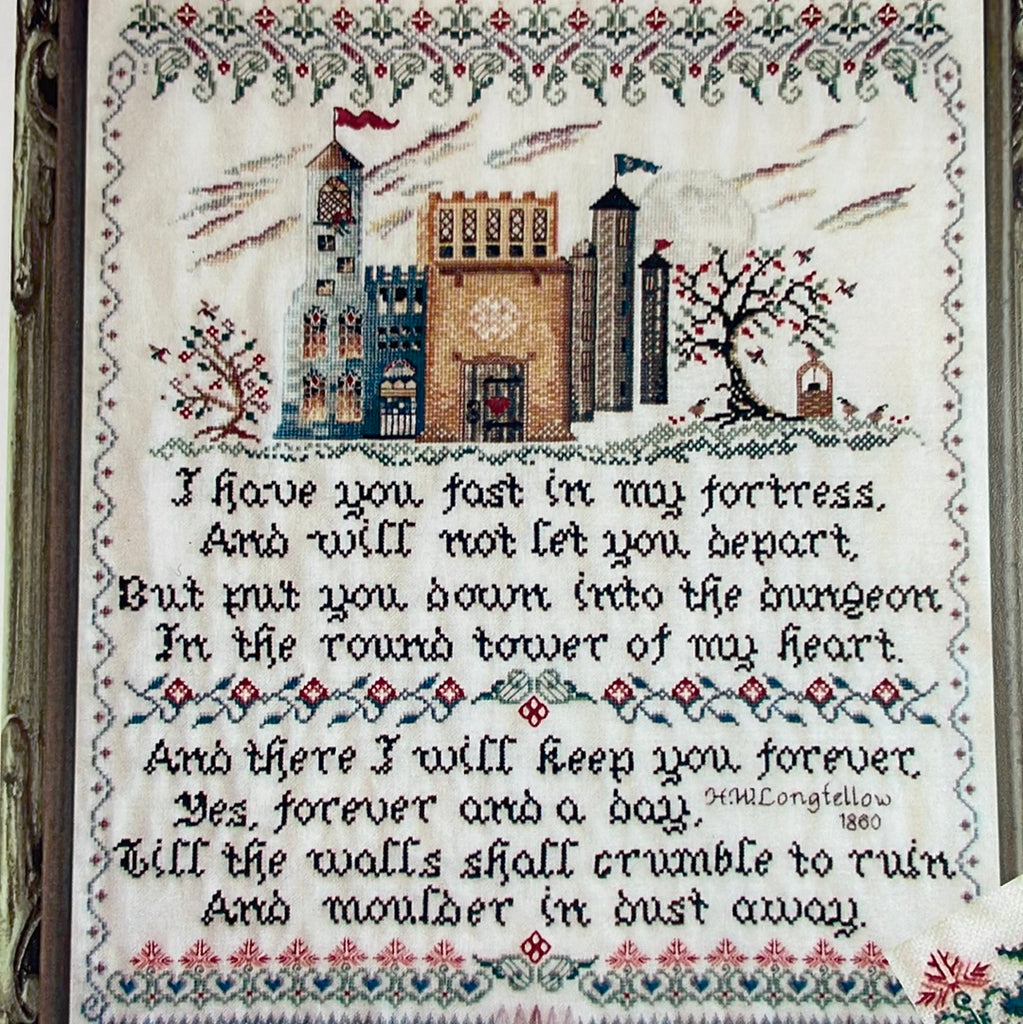 I have you fast in my fortress,
And will not let you depart,
But put you down into the dungeon
In the round tower of my heart.
And there I will keep you forever,
Yes, forever and a day,
H.W.Longfellow
1860
Till the walls shall crumble to ruin
And moulder in dust away.